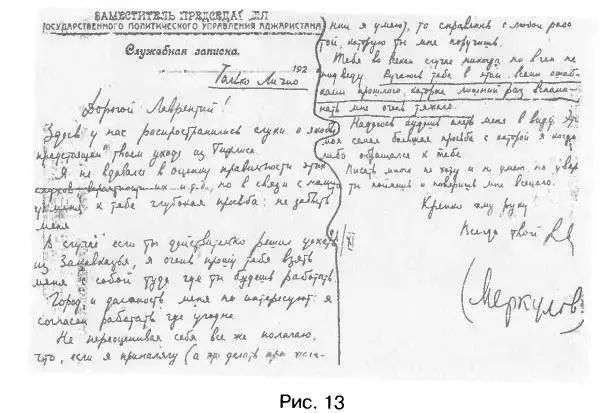 ЗАМЕСТИТЕЛЬ ПРЕДСЕДАТЕЛЯ
ГОСУДАРСТВЕННОГО ПОЛИТИЧЕСКОГО УПРАВЛЕНИЯ АДЖАРИСТАНА
Служебная записка.
192
Только Лично
Дорогой Лаврентий!
Здесь у нас распространились слухи о якобы
предстоящем твоем уходе из Тифлиса.
Я не вдавался в оценку правильности этих
слухов вероятности их и т.д., но в связи с ними
у меня к тебе глубокая просьба: не забыть
меня
В случае если ты действительно решил уехать
из Закавказья, я очень прошу тебя взять
меня с собой туда где ты будешь работать.
Город и должность меня не интересуют: я
согласен работать где угодно.
Не переоценивая себя все же полагаю,
что, если я приналягу (а это делать при жела-
нии я умею), то справлюсь с любой рабо
той, которую ты мне поручишь.
Тебя во всяком случае никогда ни в чем не
подведу. Ручаюсь тебе в этом всеми ошиб-
ками прошлого, которые лишний раз вспоми-
нать мне очень тяжело.
Надеюсь будешь иметь меня в виду. Это
моя самая большая просьба с которой я когда
либо обращался к тебе.
Писать много не хочу и не умею но увер
ты поймешь и поверишь мне всецело.
Крепко жму руку
Всегда твой
(Меркулов)
Рис. 13